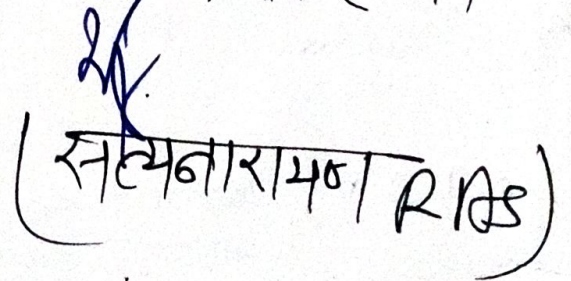 (सत्यनारायण RAS)